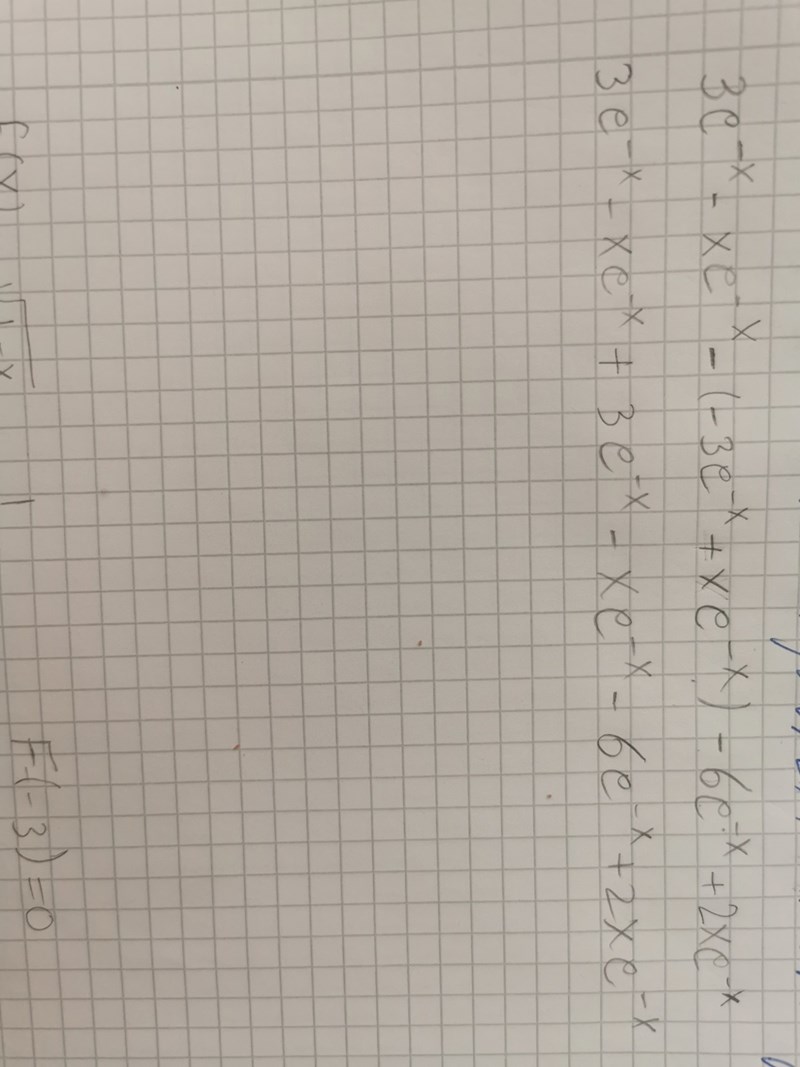 3e^-x - xe^-x - (-3e^-x + xe^-x) - 6e^-x + 2xe^-x
3e^-x - xe^-x + 3e^-x - xe^-x - 6e^-x + 2xe^-x
F(-3) = 0